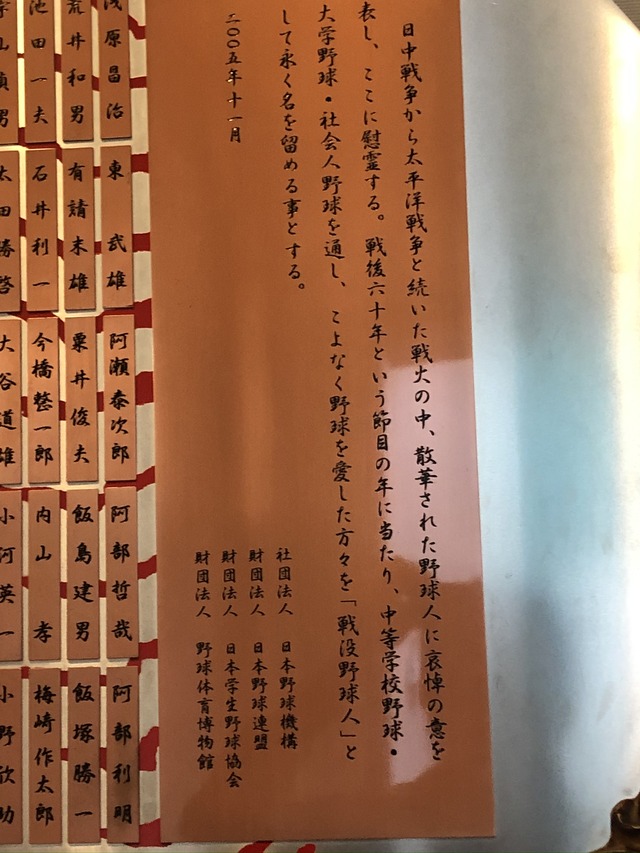 日中戦争から太平洋戦争と続いた戦火の中、散華された野球人に哀悼の意を
表し、ここに慰霊する。戦後六十年という節目の年に当たり、中等学校野球・
大学野球・社会人野球を通し、こよなく野球を愛した方々を「戦没野球人」と
して永く名を留める事とする。
二〇〇五年十一月
社団法人 日本野球機構
財団法人 日本野球連盟
財団法人 日本学生野球協会
財団法人 野球体育博物館
浅原昌治
東 武雄
阿瀬泰次郎
阿部哲哉
阿部利明
荒井和男
有請末雄
粟井俊夫
飯島建男
飯塚勝一
池田一夫
石井利一
今橋整一郎
内山 孝
梅崎作太郎
太田勝啓
大谷道雄
小河英一
小野欣助